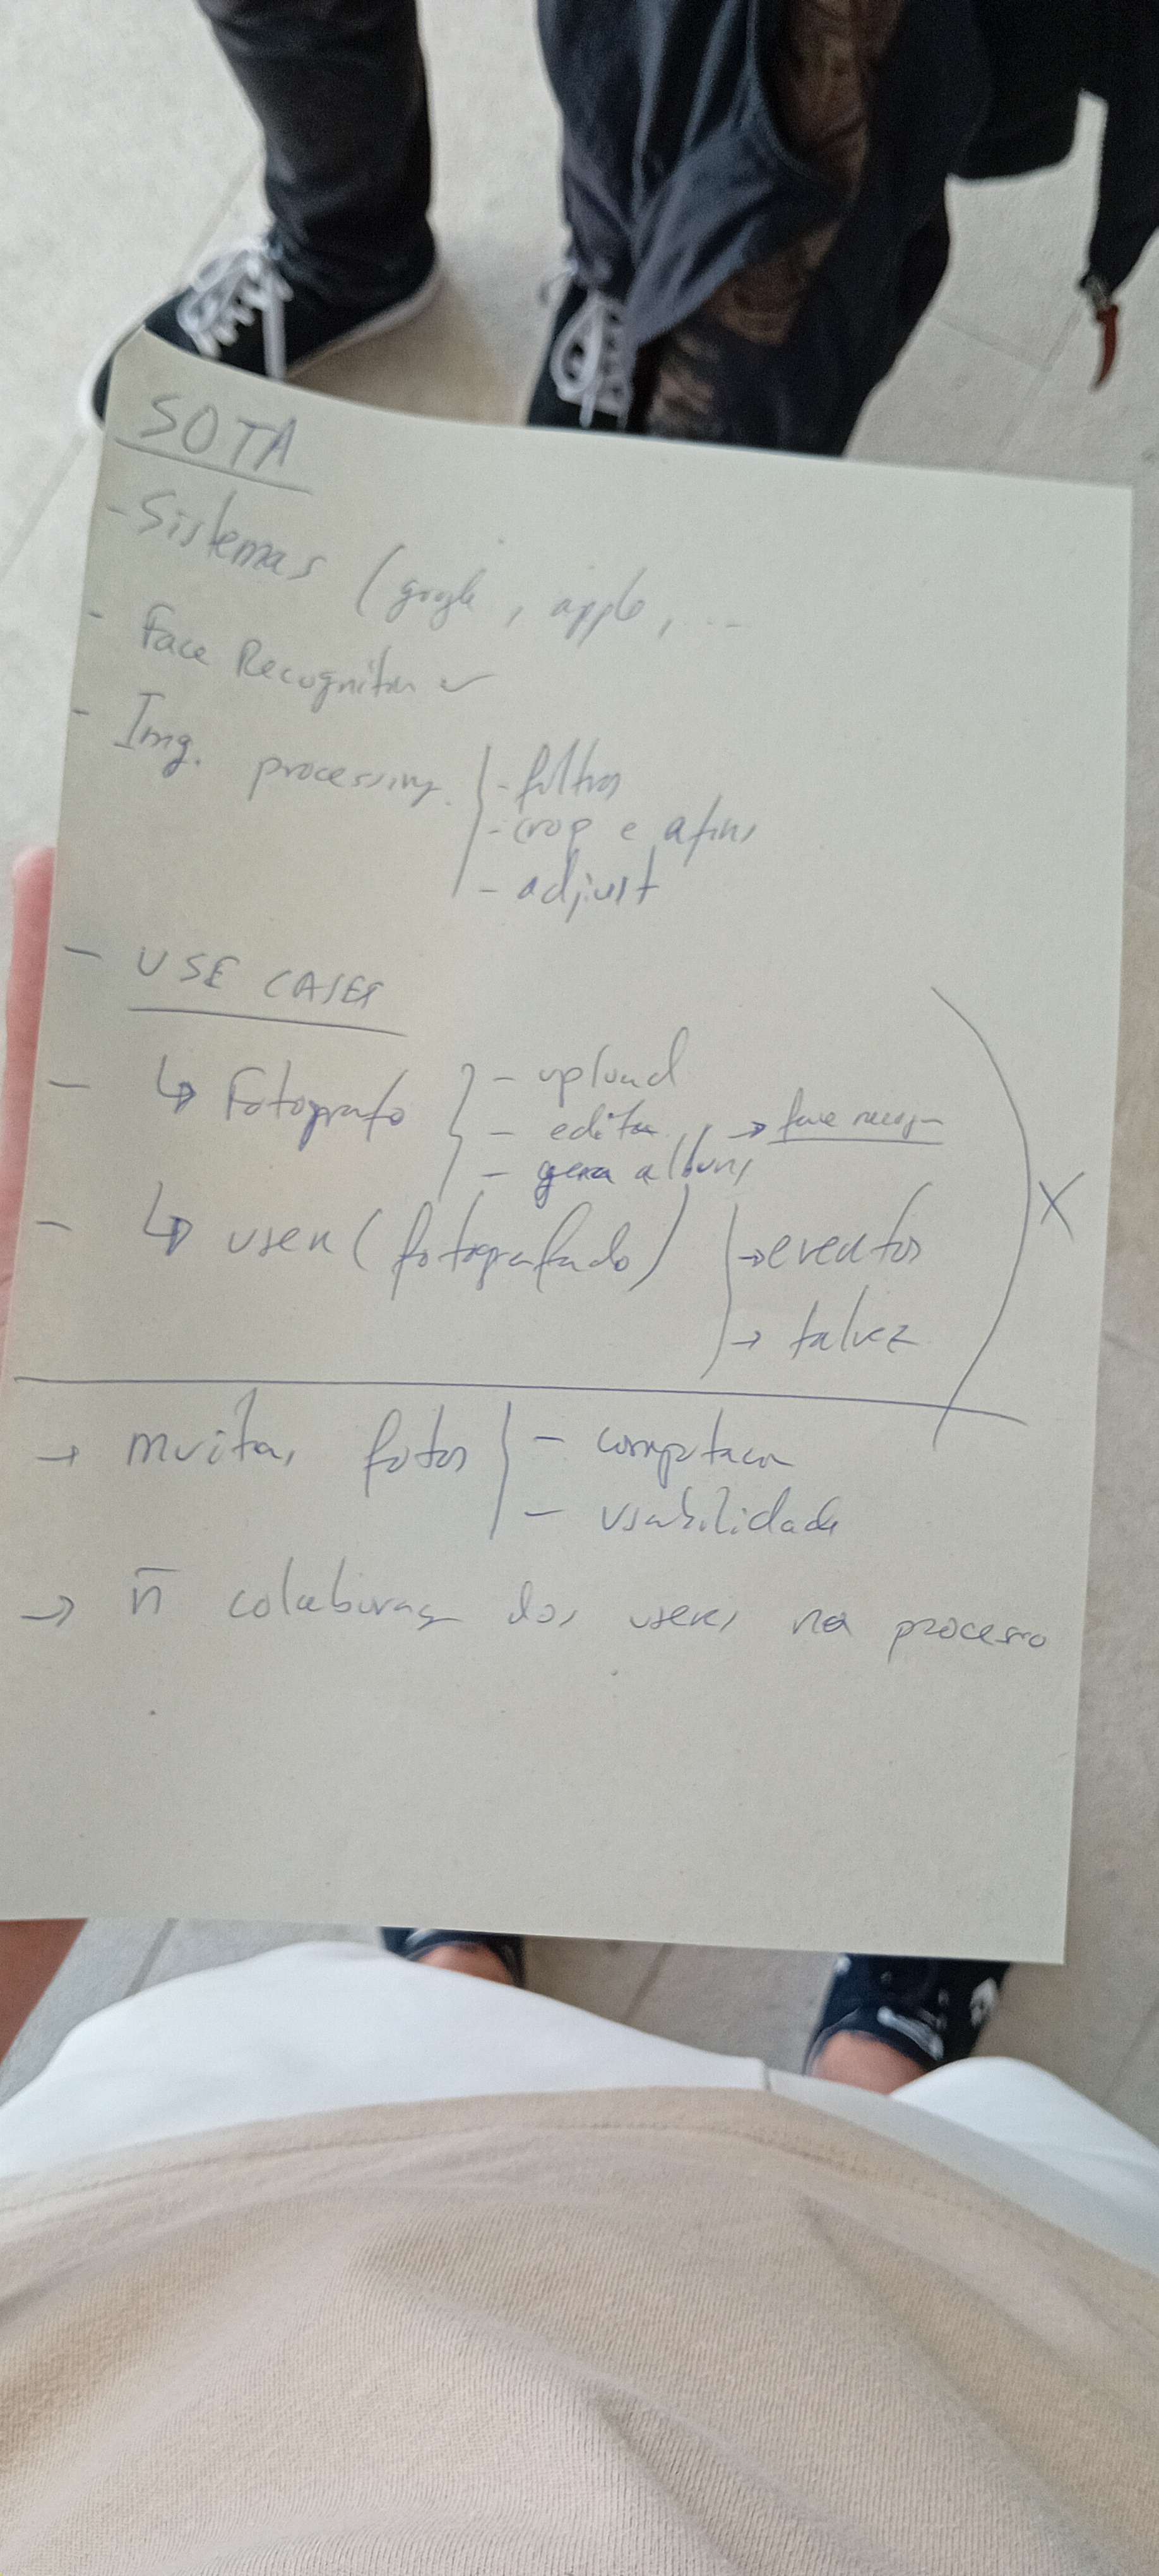 SOTA
- Sistemas (google, apple, ...
- Face Recognition ✓
- Img. processing. - filtros
- crop e afins
- adjust
- USE CASES
- ↳ Fotografo - upload
- editar → face recogn
- gera albuns
- ↳ user (fotografado) → eventos
→ talvez
X
→ muitas fotos - computacao
- usabilidade
→ ñ colaboracao dos users no processo